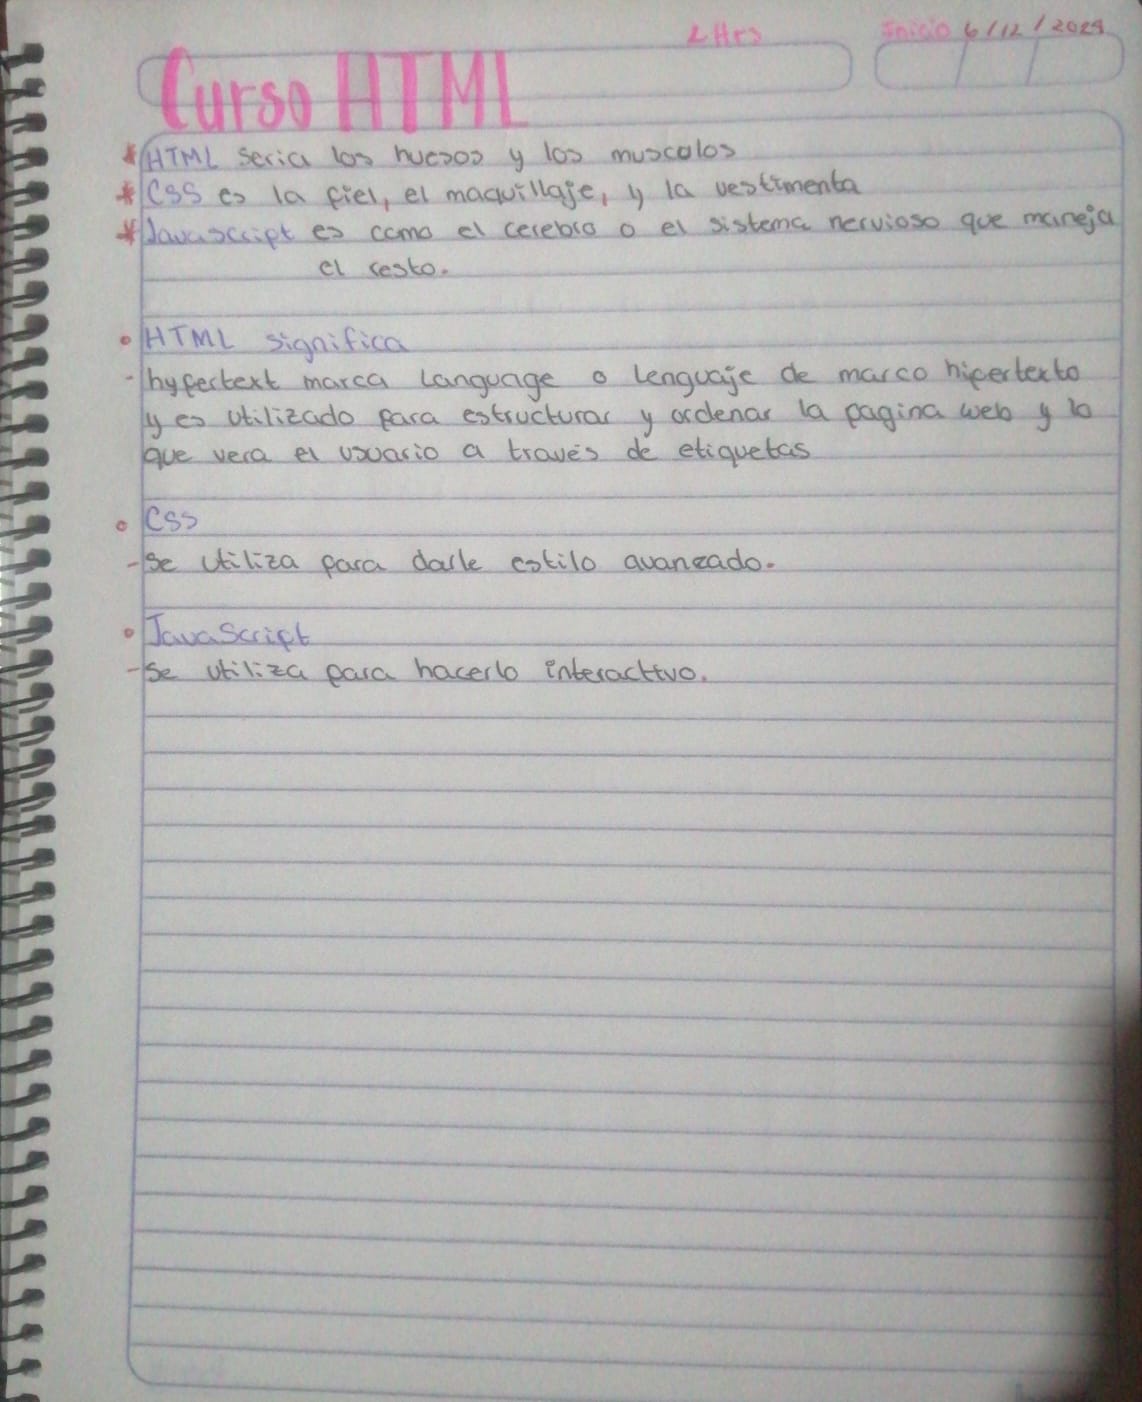 2 Hrs Inicio 6/12/2024
Curso HTML
* HTML seria los huesos y los musculos
* CSS es la piel, el maquillaje, y la vestimenta
* Javascript es como el cerebro o el sistema nervioso que maneja
el resto.
• HTML significa
- hypertext marca Language o lenguaje de marco hipertexto
y es utilizado para estructurar y ordenar la pagina web y lo
que vera el usuario a través de etiquetas
• CSS
- Se utiliza para darle estilo avanzado.
• JavaScript
- Se utiliza para hacerlo interactivo.